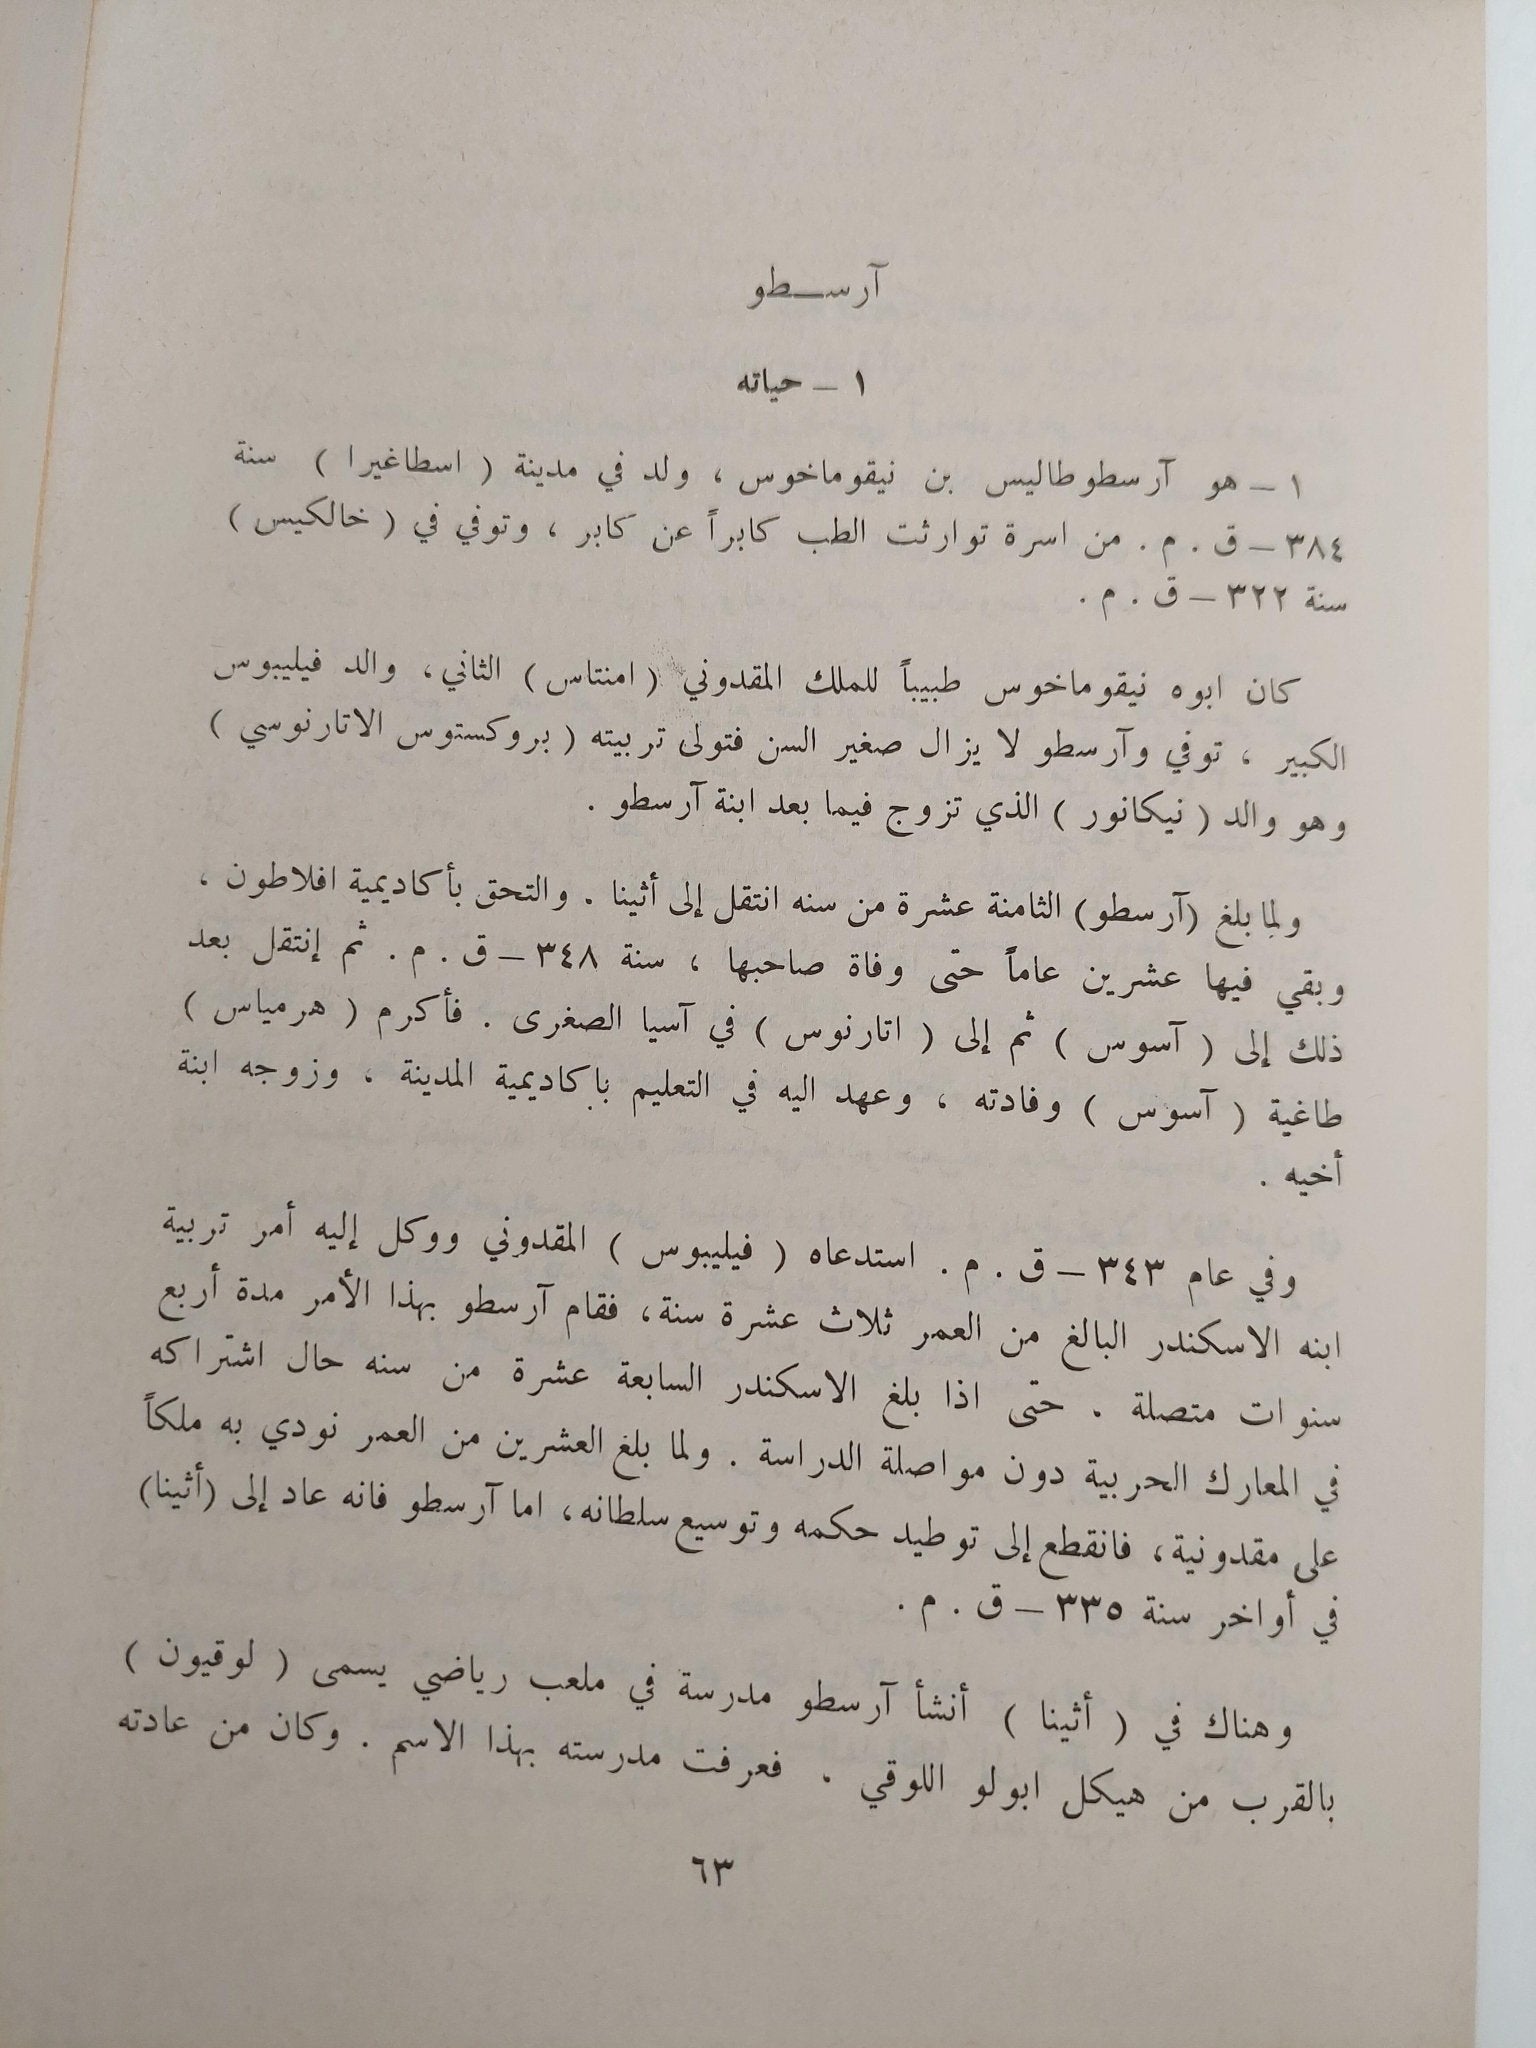 آرسـطو
١ – حياته
١ – هو آرسطوطاليس بن نيقوماخوس ، ولد في مدينة ( اسطاغيرا ) سنة
٣٨٤ – ق . م . من اسرة توارثت الطب كابراً عن كابر ، وتوفي في ( خالكيس )
سنة ٣٢٢ – ق . م .
كان ابوه نيقوماخوس طبيباً للملك المقدوني ( امنتاس ) الثاني، والد فيليبوس
الكبير ، توفي وآرسطو لا يزال صغير السن فتولى تربيته ( بروكستوس الاتارنوسي )
وهو والد ( نيكانور ) الذي تزوج فيما بعد ابنة آرسطو .
ولما بلغ (آرسطو) الثامنة عشرة من سنه انتقل إلى أثينا . والتحق بأكاديمية افلاطون ،
وبقي فيها عشرين عاماً حتى وفاة صاحبها ، سنة ٣٤٨ – ق . م . ثم إنتقل بعد
ذلك إلى ( آسوس ) ثم إلى ( اتارنوس ) في آسيا الصغرى . فأكرم ( هرمياس )
طاغية ( آسوس ) وفادته ، وعهد اليه في التعليم باكاديمية المدينة ، وزوجه ابنة
أخيه .
وفي عام ٣٤٣ – ق . م . استدعاه ( فيليبوس ) المقدوني ووكل إليه أمر تربية
ابنه الاسكندر البالغ من العمر ثلاث عشرة سنة، فقام آرسطو بهذا الأمر مدة أربع
سنوات متصلة . حتى اذا بلغ الاسكندر السابعة عشرة من سنه حال اشتراكه
في المعارك الحربية دون مواصلة الدراسة . ولما بلغ العشرين من العمر نودي به ملكاً
على مقدونية، فانقطع إلى توطيد حكمه وتوسيع سلطانه، اما آرسطو فانه عاد إلى (أثينا)
في أواخر سنة ٣٣٥ – ق . م .
وهناك في ( أثينا ) أنشأ آرسطو مدرسة في ملعب رياضي يسمى ( لوقيون )
بالقرب من هيكل ابولو اللوقي . فعرفت مدرسته بهذا الاسم . وكان من عادته
٦٣